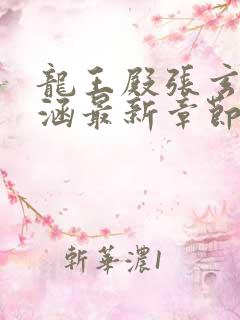 龍王殿張玄
涵最新章節
斬華濃1